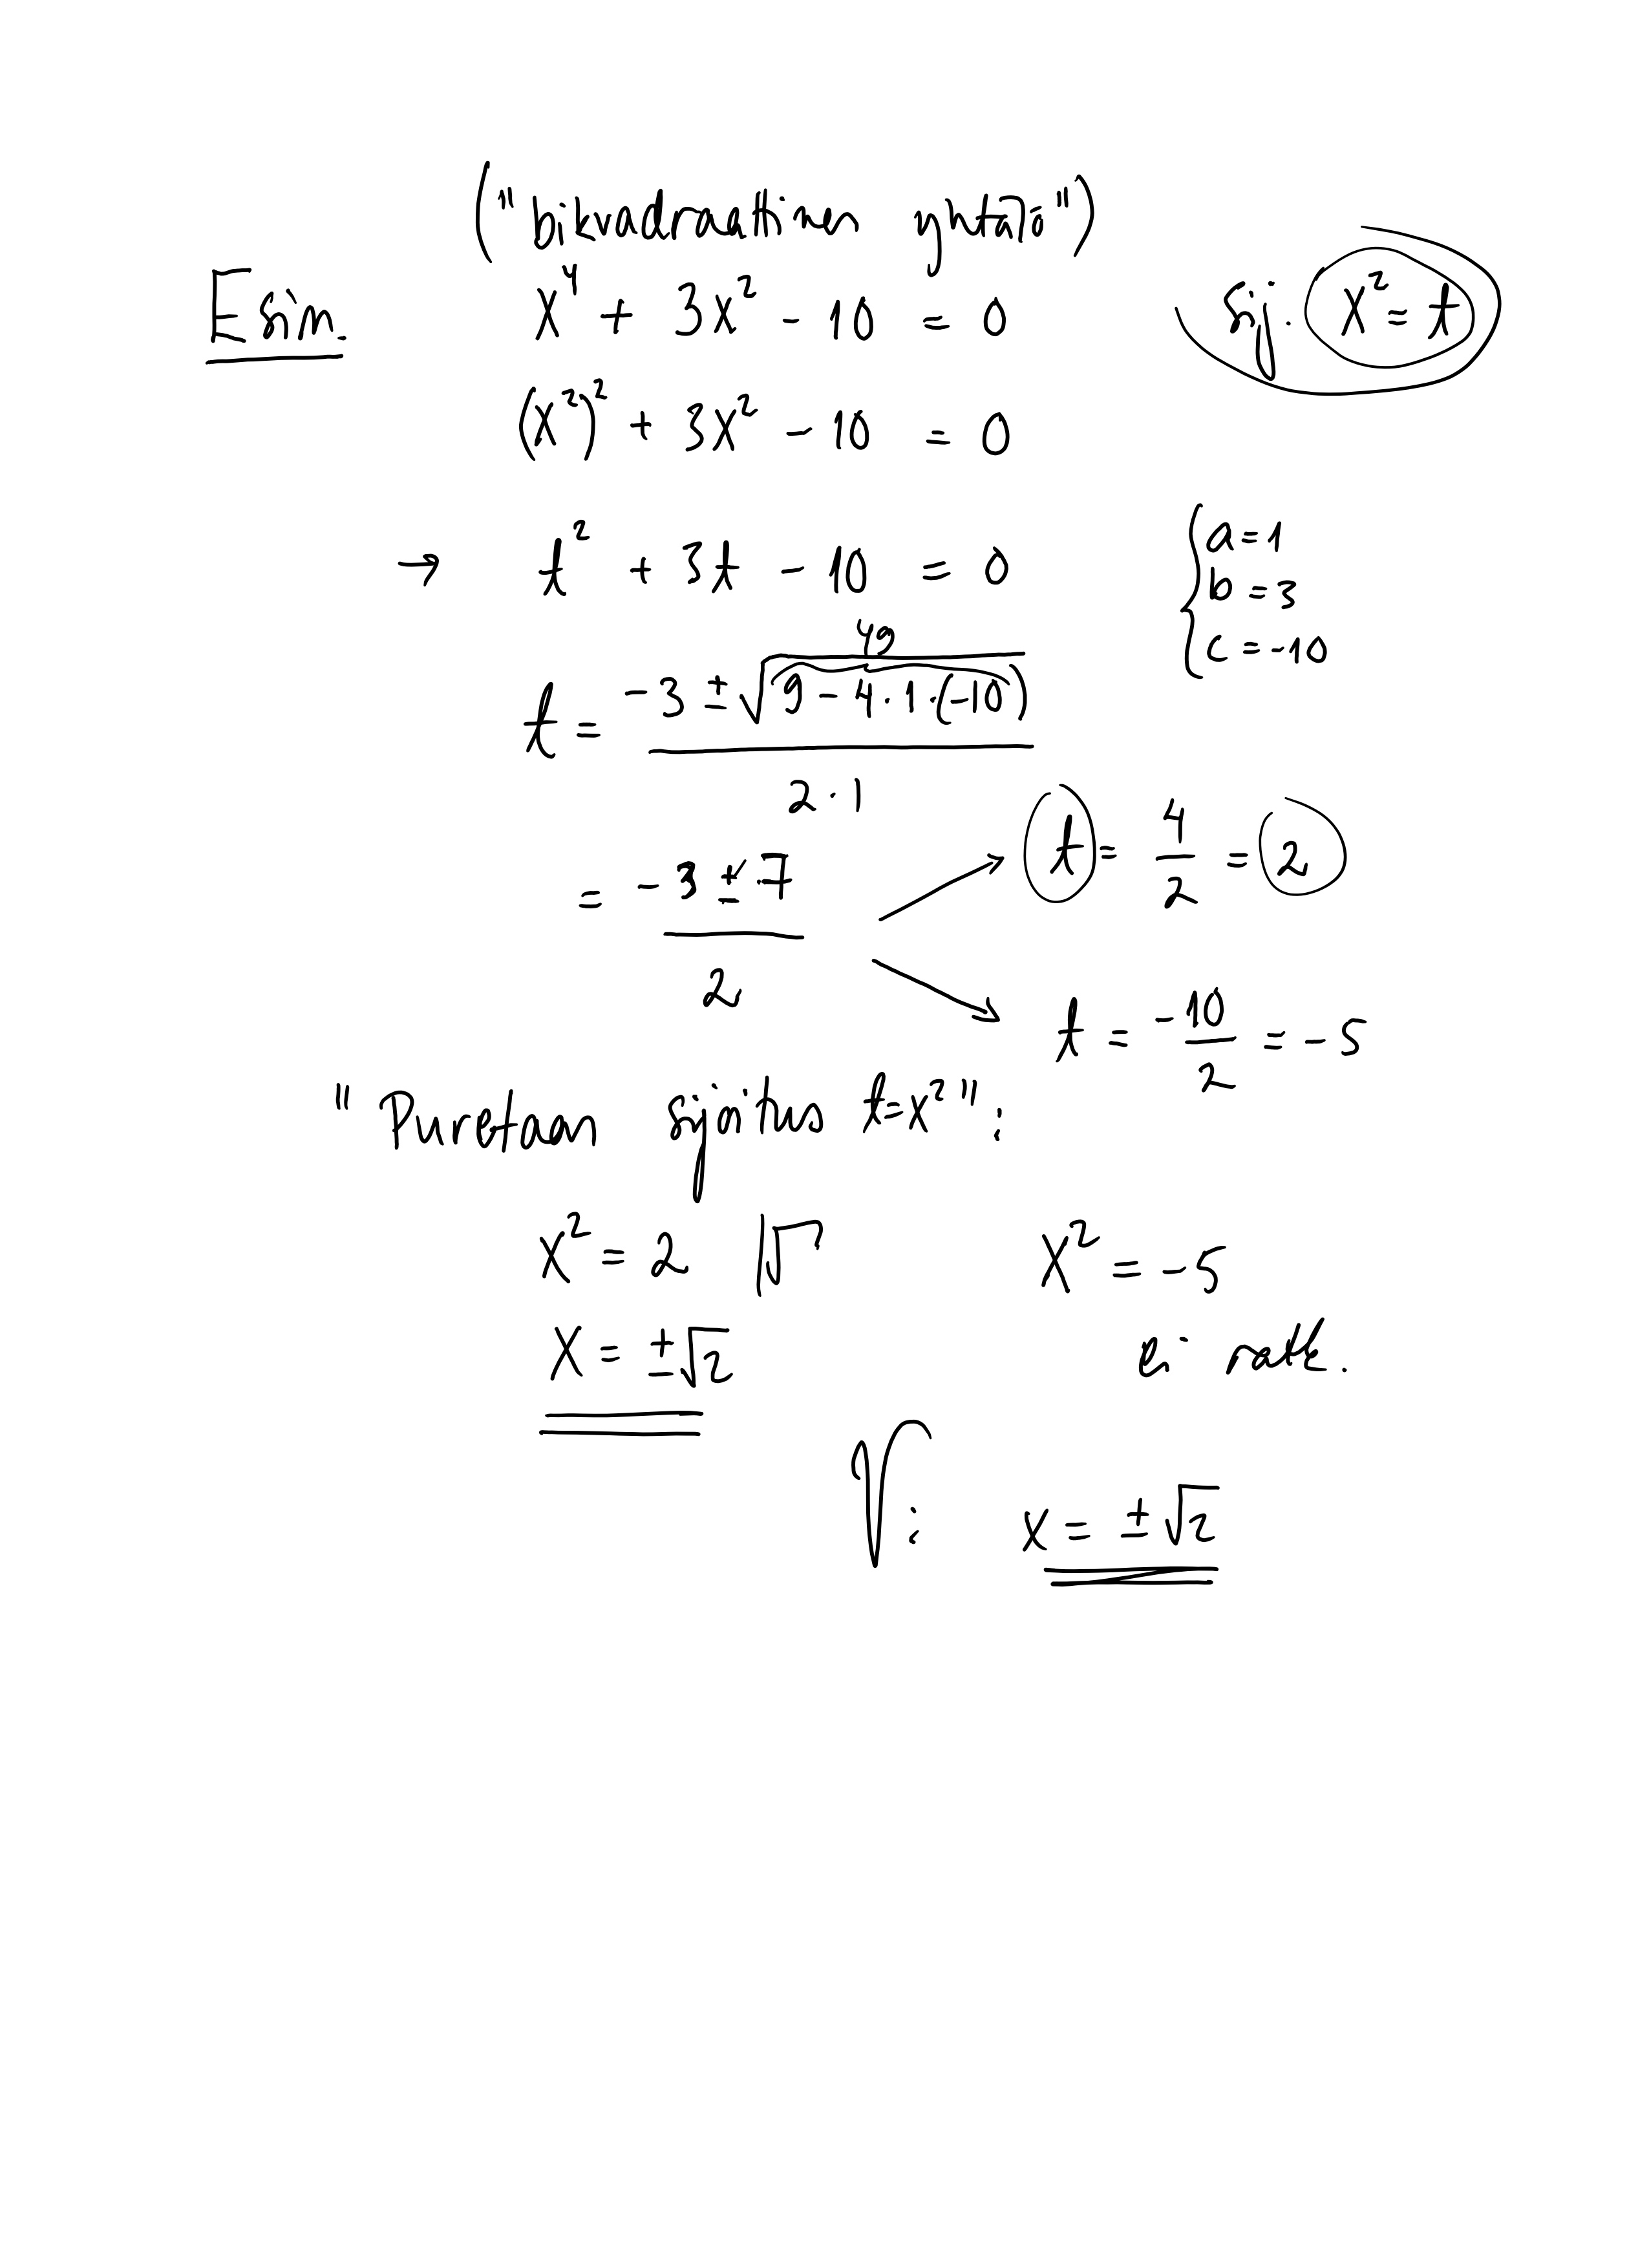 ("bikvadraattinen yhtälö")
Esim. x⁴ + 3x² - 10 = 0 sij. x² = t
(x²)² + 3x² - 10 = 0
→ t² + 3t - 10 = 0
a = 1
b = 3
c = -10
49
t = (-3 ± √(9 - 4·1·(-10))) / (2·1)
= (-3 ± 7) / 2
t = 4/2 = 2
t = -10/2 = -5
"Puretaan sijoitus t=x²":
x² = 2 |√ x² = -5
x = ±√2 ei ratk.
V: x = ±√2